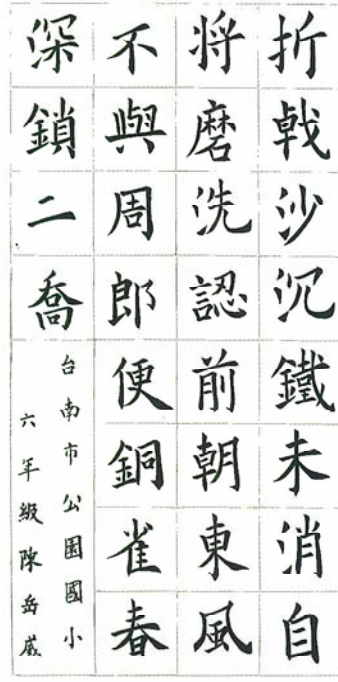 折戟沙沉鐵未消自
將磨洗認前朝東風
不與周郎便銅雀春
深鎖二喬
台南市公園國小
六年級陳岳葳